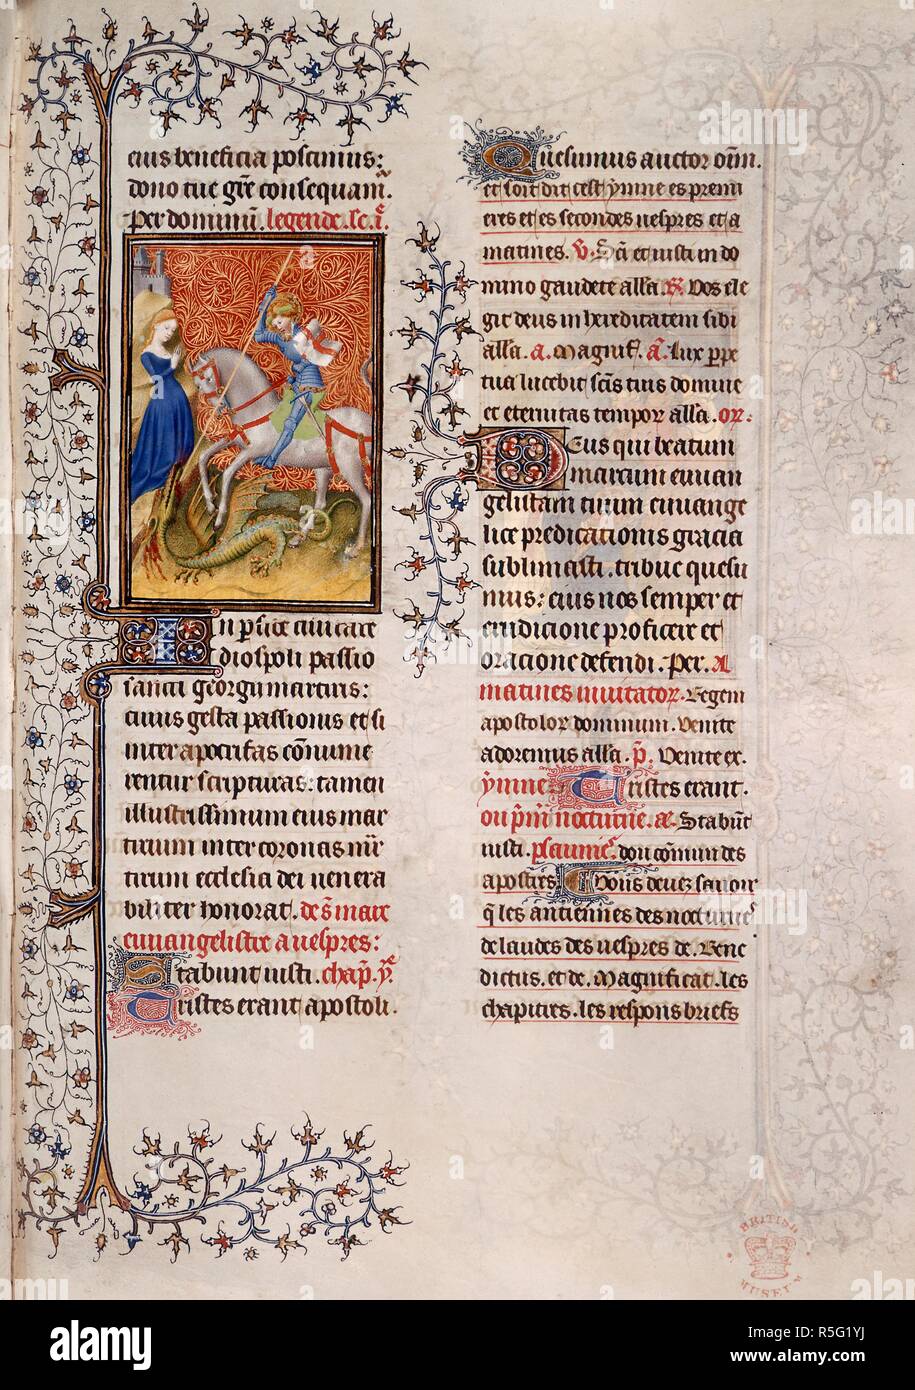 eius beneficia poscimus:
dono tue gr̃e consequam̃.
Per dominũ. legende. sc̃ i.
In ps̃ide ciuitate
diospoli passio
sancti georgii martiris:
cuius gesta passionis et si
inter apocrifas cõnume
rentur scripturas: tamen
illustrissimum eius mar
tirium inter coronas m̃r
tirum ecclesia dei uenera
biliter honorat. de s̃ marc
euuangelistre a uespres:
Stabunt iusti. chap̃. y.̃
Tristes erant apostoli.
Quesumus auctor oñi.
et soit dit cest ynne es premi
eres et es secondes uespres et a
matines. V. Sc̃i et iusti in do
mino gaudete all'a. R̃. Vos ele
git deus in hereditatem sibi
all'a. a. Magnif̃. ã. Lux p̃pe
tua lucebit sc̃is tuis domine
et eternitas tempor all'a. or̃.
Deus qui beatum
marcum euuan
gelistam tuum euuange
lice predicationis gracia
sublimasti. tribue quesu
mus: eius nos semper et
erudicione proficere et
oracione defendi. Per. A
matines inuitator̃. Regem
apostolor dominum. Venite
adoremus all'a. p̃. Venite ex.
ynne. Tristes erant.
ou p̃m̃ nocturne. ã. Stabũt
iusti. psaumes̃. dou cõmun des
apostres Vous deuez sauoir
q̃ les antiennes des nocturnes̃
de laudes des uespres de. Bene
dictus. et de. Magnificat. les
chapitres. les respons briefs
BRITISH
MUSEUM
alamy
Image ID: R5G1YJ
www.alamy.com